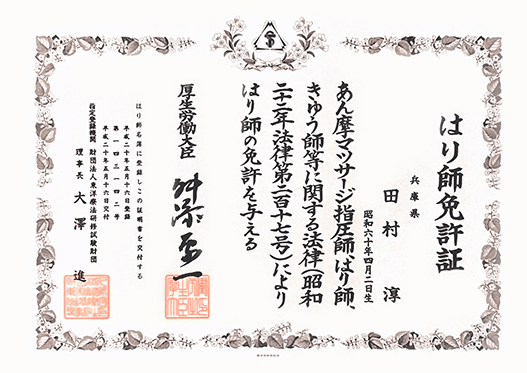 はり師免許証
兵庫県
田村 淳
昭和六十年四月二日生
あん摩マツサージ指圧師、はり師、
きゆう師等に関する法律(昭和
二十二年法律第二百十七号)により
はり師の免許を与える
厚生労働大臣 舛添要一
はり師名簿に登録しこの証明書を交付する
平成二十年五月十六日登録
第一四三一四二号
平成二十年五月十六日交付
指定登録機関 財団法人東洋療法研修試験財団
理事長 大澤 進